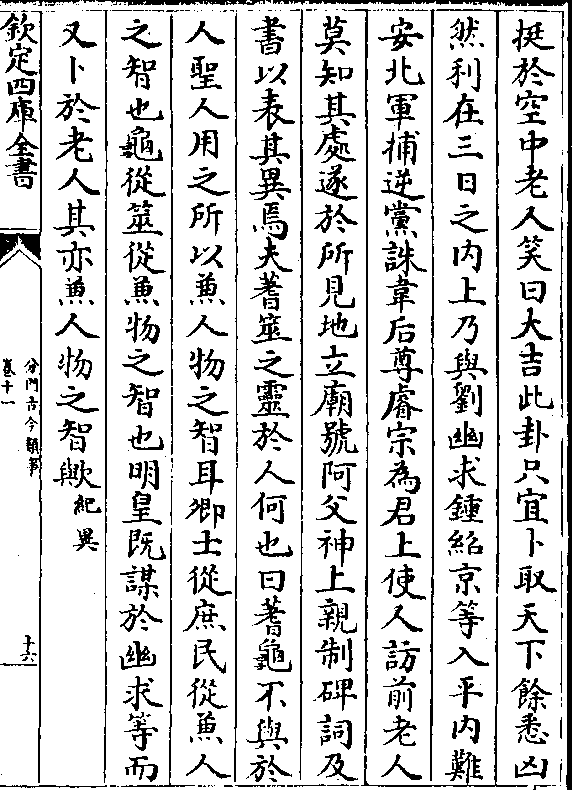 挺於空中老人笑曰大吉此卦只宜卜取天下餘悉凶
然利在三日之内上乃與劉幽求鍾紹京等入平内難
安北軍捕逆黨誅韋后尊睿宗為君上使人訪前老人
莫知其處遂於所見地立廟號阿父神上親制碑詞及
書以表其異焉夫蓍筮之靈於人何也曰蓍龜不與於
人聖人用之所以兼人物之智耳卿士從庶民從兼人
之智也龜從筮從兼物之智也明皇既謀於幽求等而
又卜於老人其亦兼人物之智歟紀異
欽定四庫全書
卷十一
分門古今類事
十六